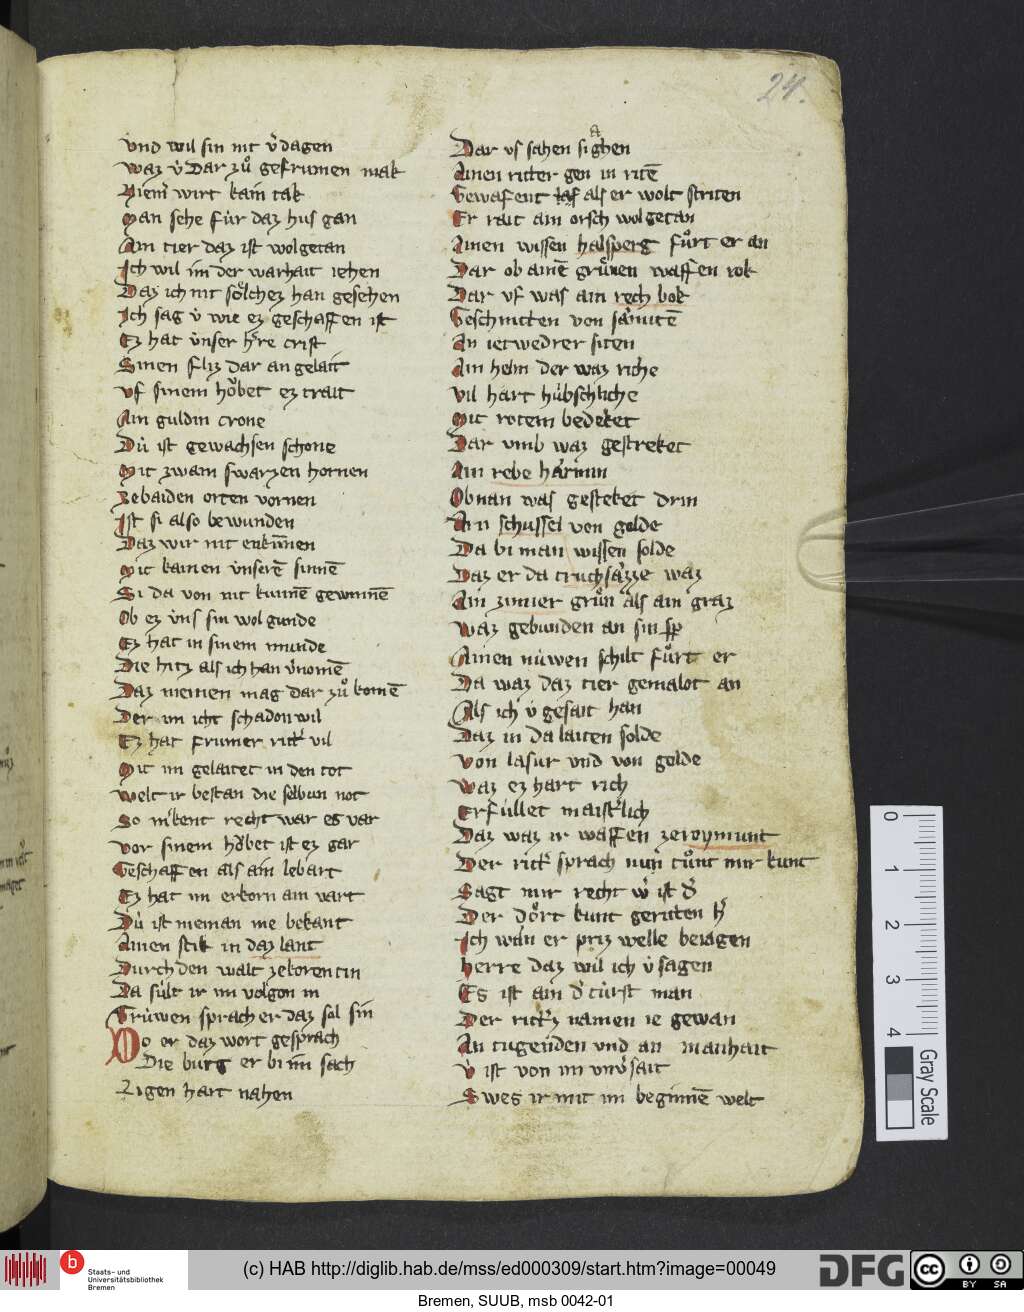 24.
vnd wil sin nit v̓dagen
waz v̓ Dar zuͦ gefrumen mak
Niem̄ wirt kain tak
Man sehe für daz hus gan
Ain tier daz ist wolgetan
Ich wil im der warhait iehen
Daz ich nit soͤlchez han gesehen
Ich sag v̓ wie ez geschaffen ist
Ez hat v̓nser h̓re crist
Sinen fliz dar an gelait
vf sinem hoͮbet ez trait
Ain guldin crone
Dü ist gewachsen schone
Mit zwain swarzen hornen
Zebaiden orten vornen
Ist si also bewunden
Daz wir nit enkūnen
Mit kainen v̓nserē sinnē
Si da von nit kunnē gewinnē
Ob ez v̓ns sin wol gunde
Ez hat in sinem munde
Die hitz als ich han v̓nomē
Daz niemen mag dar zuͦ komē
Der im icht schadon wil
Ez hat frumer ritt̓ vil
Mit im gelaitet in den tot
welt ir bestan die selbun not
So m̓kent recht war es var
vor sinem hoͮbet ist ez gar
Geschaffen als ain lebart
Ez hat im erkorn ain vart
Dü ist nieman me bekant
Ainen stik in daz lant
Durch den walt zekorentin
Da sült ir im volgon in
Trüwen sprach er daz sol sin
Do er daz wort gesprach
Die burg er bi im sach
Ligen hart nahen
Dar vf sahen si gahen
Ainen ritter gen in ritē
Gewafent als er wolt striten
Er rait ain orsch wolgetan
Ainen wissen halsperg fuͦrt er an
Dar ob ainē gruͤnen waffen rok
Dar vf was ain rech bok
Geschnitten von sämitē
An ietwedrer siten
Ain helm der waz riche
Vil hart hübschliche
Mit rotem bedeket
Dar vmb waz gestreket
Ain rebe härmin
Obnan was gesteket drin
Ain schussel von golde
Da bi man wissen solde
Daz er da truchsäzze waz
Ain zimier gruͤn als ain graz
Waz gebunden an sin sp̄
Ainen nüwen schilt fuͦrt er
Da waz daz tier gemalot an
Als ich v̓ gesait han
Daz in da laiten solde
Von lasur vnd von golde
Waz ez hart rich
Erfüllet maist̓lich
Daz waz ir waffen zeroymunt
Der ritt̓ sprach nun tuͦnt mir kunt
Sagt mir recht w̓ ist d̓
Der doͤrt kunt geritten h̓
Ich wän er priz welle beiagen
herre daz wil ich v̓ sagen
Es ist ain d̓ türst man
Der ritt̓z namen ie gewan
An tugenden vnd an manhait
v̓ ist von im vnv̓sait
Swes ir mit im beginnē welt
0
1
2
3
4
Gray Scale
b
Staats- und
Universitätsbibliothek
Bremen
(c) HAB http://diglib.hab.de/mss/ed000309/start.htm?image=00049
DFG
cc
BY SA
Bremen, SUUB, msb 0042-01